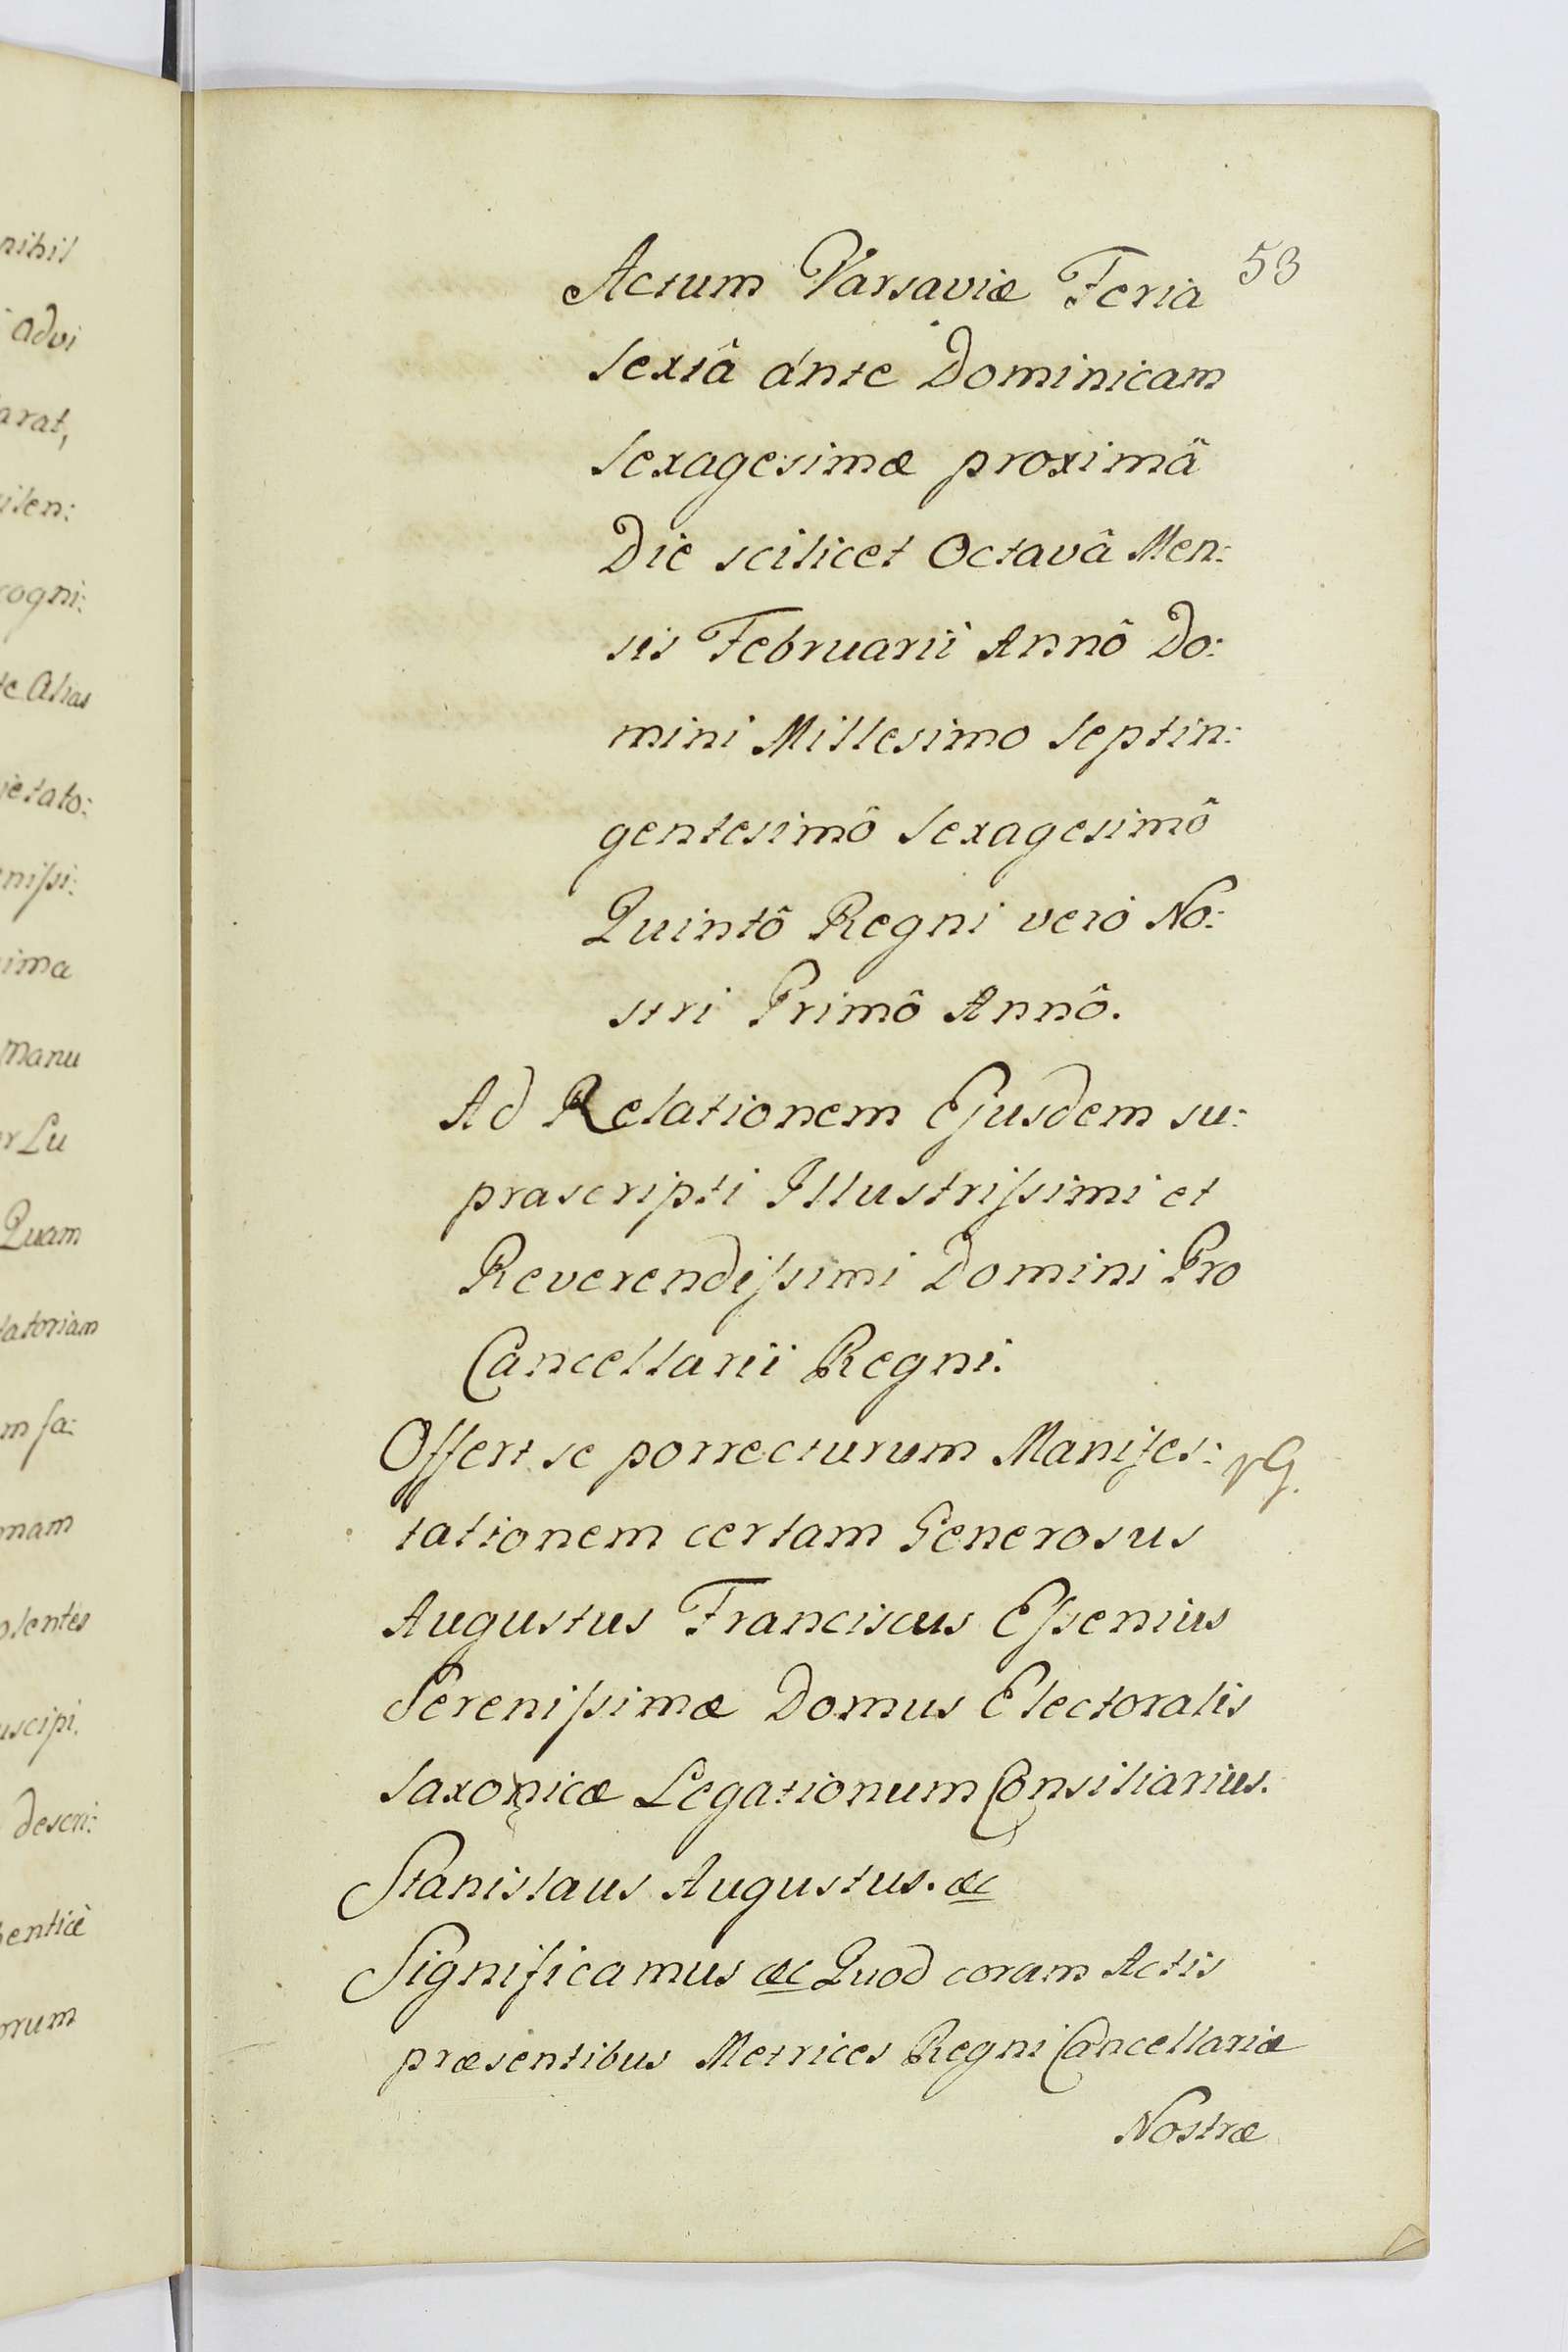 nihil
advi
arat,
ilen:
cogni:
te Alias
ietato:
niſsi:
ima
manu
er Lu
Quam
latoriam
m fa:
mam
olentes
uscipi.
descri:
henticè
orum
53
Actum Varsaviæ Feria
sextâ ante Dominicam
sexagesimæ proximâ
Die scilicet Octavâ Men:
sis Februarii Annô Do:
mini Millesimo septin:
gentesimô sexagesimô
Quintô Regni verò No:
stri Primô Annô.
Ad Relationem Ejusdem su:
prascripti Illustriſsimi et
Reverendiſsimi Domini Pro
Cancellarii Regni.
Offert se porrecturum Manifes:
tationem certam Generosus
Augustus Franciscus Eſsenius
Sereniſsimæ Domus Electoralis
saxonicæ Legationum Consiliarius.
Stanislaus Augustus. &c
Significamus &c Quod coram Actis
præsentibus Metrices Regni Cancellariæ
Nostræ